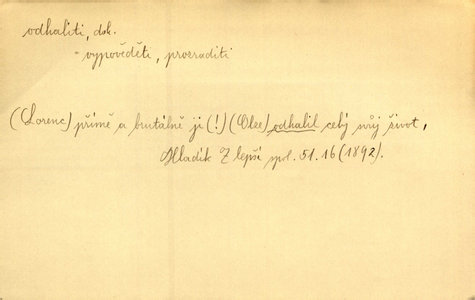 odhaliti, dok.
= vypověděti, prozraditi
(Lorenc) přímě a brutálně ji (!) (Olze) odhalil celý svůj život,
Hladík Z lepší spol. 51. 16 (1892).